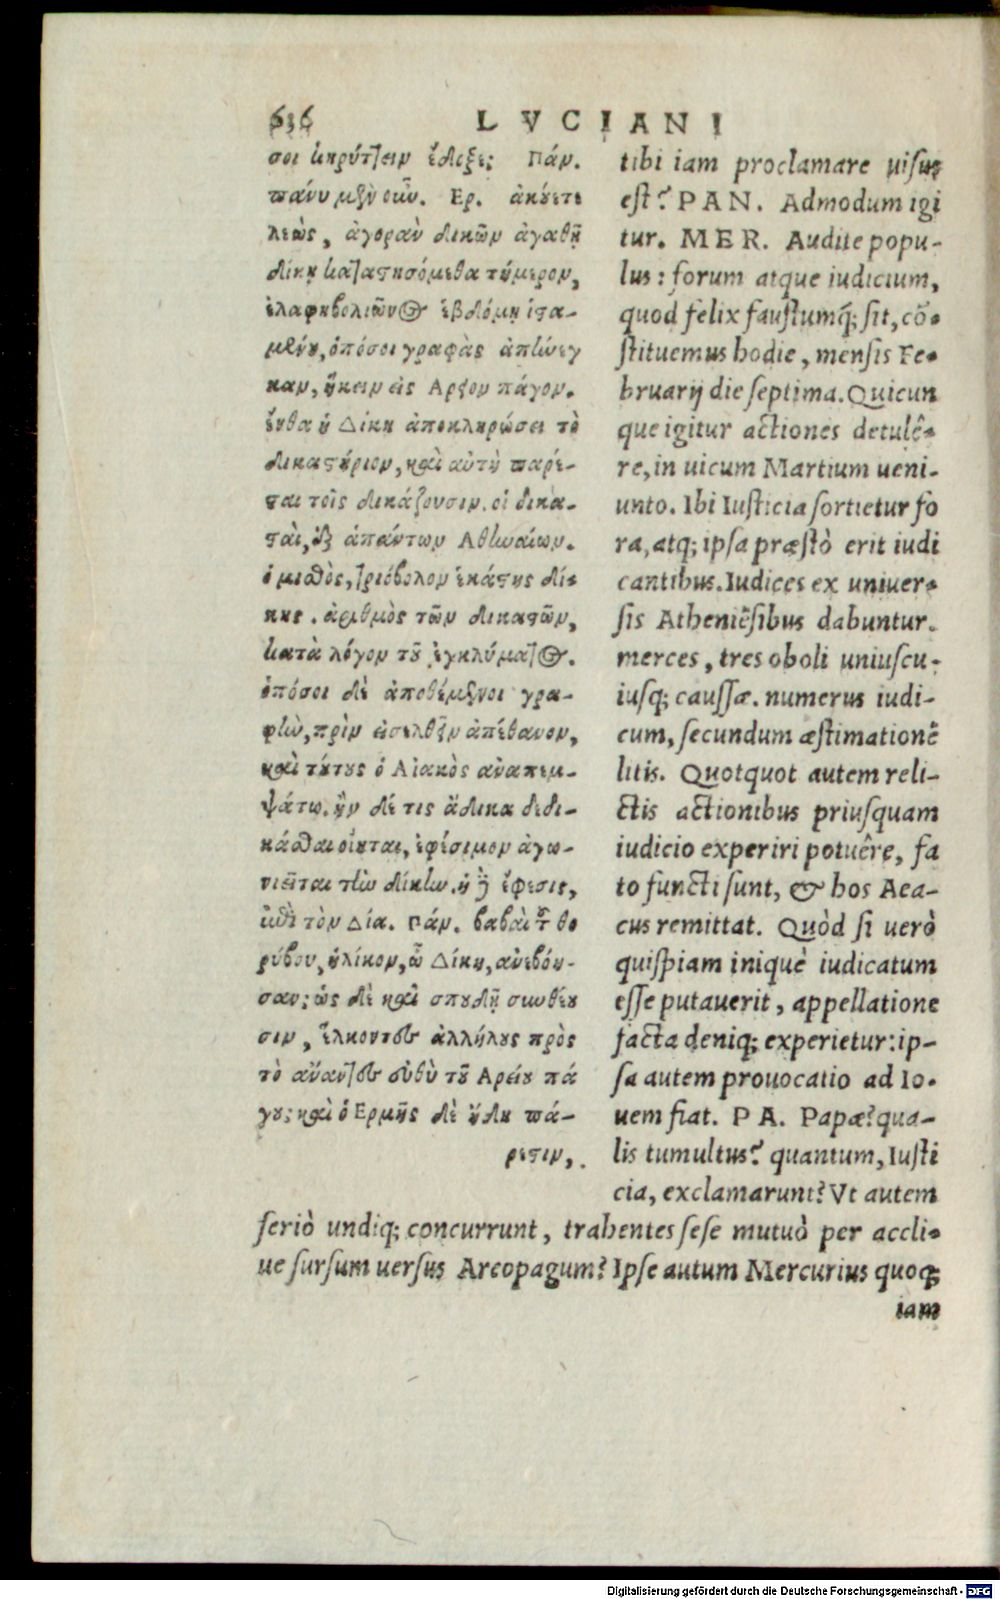 636 LVCIANI
σοι κηρύττειν ἔδοξε; Πάν.
πάνυ μὲν οὖν. Ερ. ἀκούετε
λεὼς, ἀγορὰν δικῶν ἀγαθῇ
δίκῃ καταστησόμεθα τήμερον,
ἐλαφηβολιῶνος ἑβδόμῃ ἱστα-
μένου, ὁπόσοι γραφὰς ἀπήνεγ
καν, ἥκειν εἰς Αρειον πάγον.
ἔνθα ἡ Δίκη ἀποκληρώσει τὸ
δικαστήριον, καὶ αὐτὴ παρέ-
σται τοῖς δικάζουσιν. οἱ δικα-
σταὶ, ἐξ ἁπάντων Αθηναίων.
ὁ μισθὸς, τριόβολον ἑκάστης δί-
κης. ἀριθμὸς τῶν δικαστῶν,
κατὰ λόγον τοῦ ἐγκλήματος.
ὁπόσοι δὲ ἀποθέμενοι γρα-
φὴν, πρὶν εἰσελθεῖν ἀπέθανον,
καὶ τούτους ὁ Αἰακὸς ἀναπεμ-
ψάτω. ἢν δέ τις ἄδικα δεδι-
κάσθαι οἴηται, ἐφέσιμον ἀγω-
νιεῖται τὴν δίκην. ἡ δὲ ἔφεσις,
ἐπὶ τὸν Δία. Πάν. βαβαὶ τοῦ θο
ρύβου, ἡλίκον, ὦ Δίκη, ἀνεβόη-
σαν; ὡς δὲ καὶ σπουδῇ συνθέου
σιν, ἕλκοντες ἀλλήλους πρὸς
τὸ ἄναντες εὐθὺ τοῦ Αρείου πά
γου; καὶ ὁ Ερμῆς δὲ ἤδη πά-
ρεστιν,.
tibi iam proclamare uisus
est? PAN. Admodum igi
tur. MER. Audite popu-
lus: forum atque iudicium,
quod felix faustumq; sit, cō-
stituemus hodie, mensis Fe-
bruarij die septima. Quicun
que igitur actiones detulê-
re, in uicum Martium ueni-
unto. Ibi Iusticia sortietur fo
ra, atq; ipsa præstò erit iudi
cantibus. Iudices ex uniuer-
sis Atheniēsibus dabuntur.
merces, tres oboli uniuscu-
iusq; caussæ. numerus iudi-
cum, secundum æstimationē
litis. Quotquot autem reli-
ctis actionibus priusquam
iudicio experiri potuêre, fa
to functi sunt, & hos Aea-
cus remittat. Quòd si uerò
quispiam iniquè iudicatum
esse putauerit, appellatione
facta deniq; experietur: ip-
sa autem prouocatio ad Io-
uem fiat. PA. Papæ? qua-
lis tumultus? quantum, Iusti
cia, exclamarunt? Vt autem
seriò undiq; concurrunt, trahentes sese mutuò per accli-
ue sursum uersus Areopagum? Ipse autum Mercurius quoq;
iam
Digitalisierung gefördert durch die Deutsche Forschungsgemeinschaft - DFG